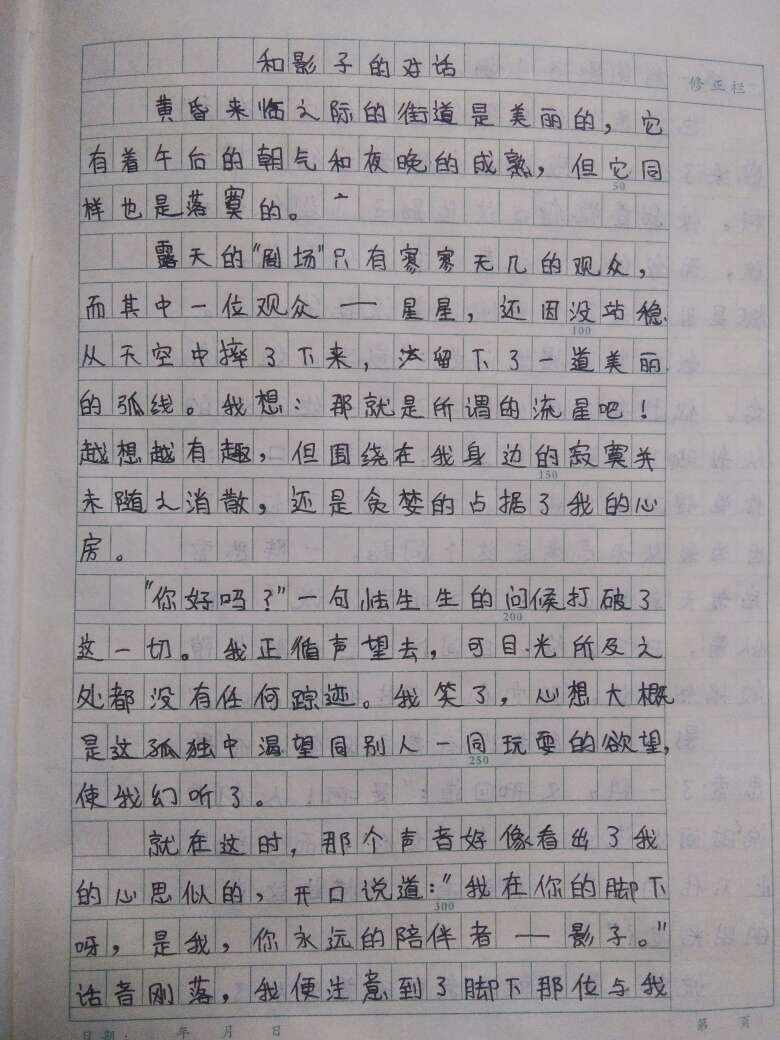 和影子的对话
修正栏
黄昏来临之际的街道是美丽的，它
有着午后的朝气和夜晚的成熟，但它同
50
样也是落寞的。
露天的"剧场"只有寥寥无几的观众，
而其中一位观众——星星，还因没站稳
100
从天空中摔了下来，留下了一道美丽
的弧线。我想：那就是所谓的流星吧！
越想越有趣，但围绕在我身边的寂寞并
150
未随之消散，还是贪婪的占据了我的心
房。
"你好吗？"一句怯生生的问候打破了
200
这一切。我正循声望去，可目光所及之
处都没有任何踪迹。我笑了，心想大概
是这孤独中渴望同别人一同玩耍的欲望，
250
使我幻听了。
就在这时，那个声音好像看出了我
的心思似的，开口说道："我在你的脚下
300
呀，是我，你永远的陪伴者——影子。"
话音刚落，我便注意到了脚下那位与我
日期： 年 月 日
第 页